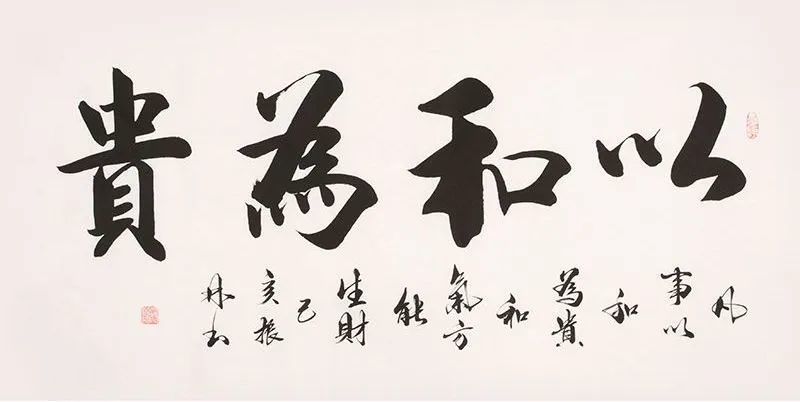 以和為貴
凡
事以
和
為貴
和
氣方
能
生財
己
亥振
林书